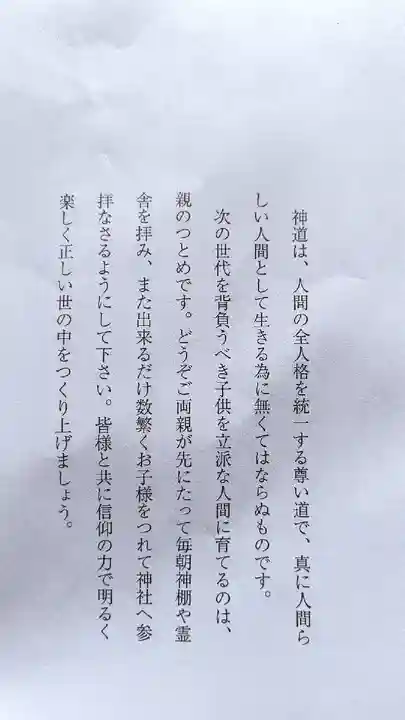 神道は、人間の全人格を統一する尊い道で、真に人間ら
しい人間として生きる為に無くてはならぬものです。
次の世代を背負うべき子供を立派な人間に育てるのは、
親のつとめです。どうぞご両親が先にたって毎朝神棚や霊
舎を拝み、また出来るだけ数繁くお子様をつれて神社へ参
拝なさるようにして下さい。皆様と共に信仰の力で明るく
楽しく正しい世の中をつくり上げましょう。